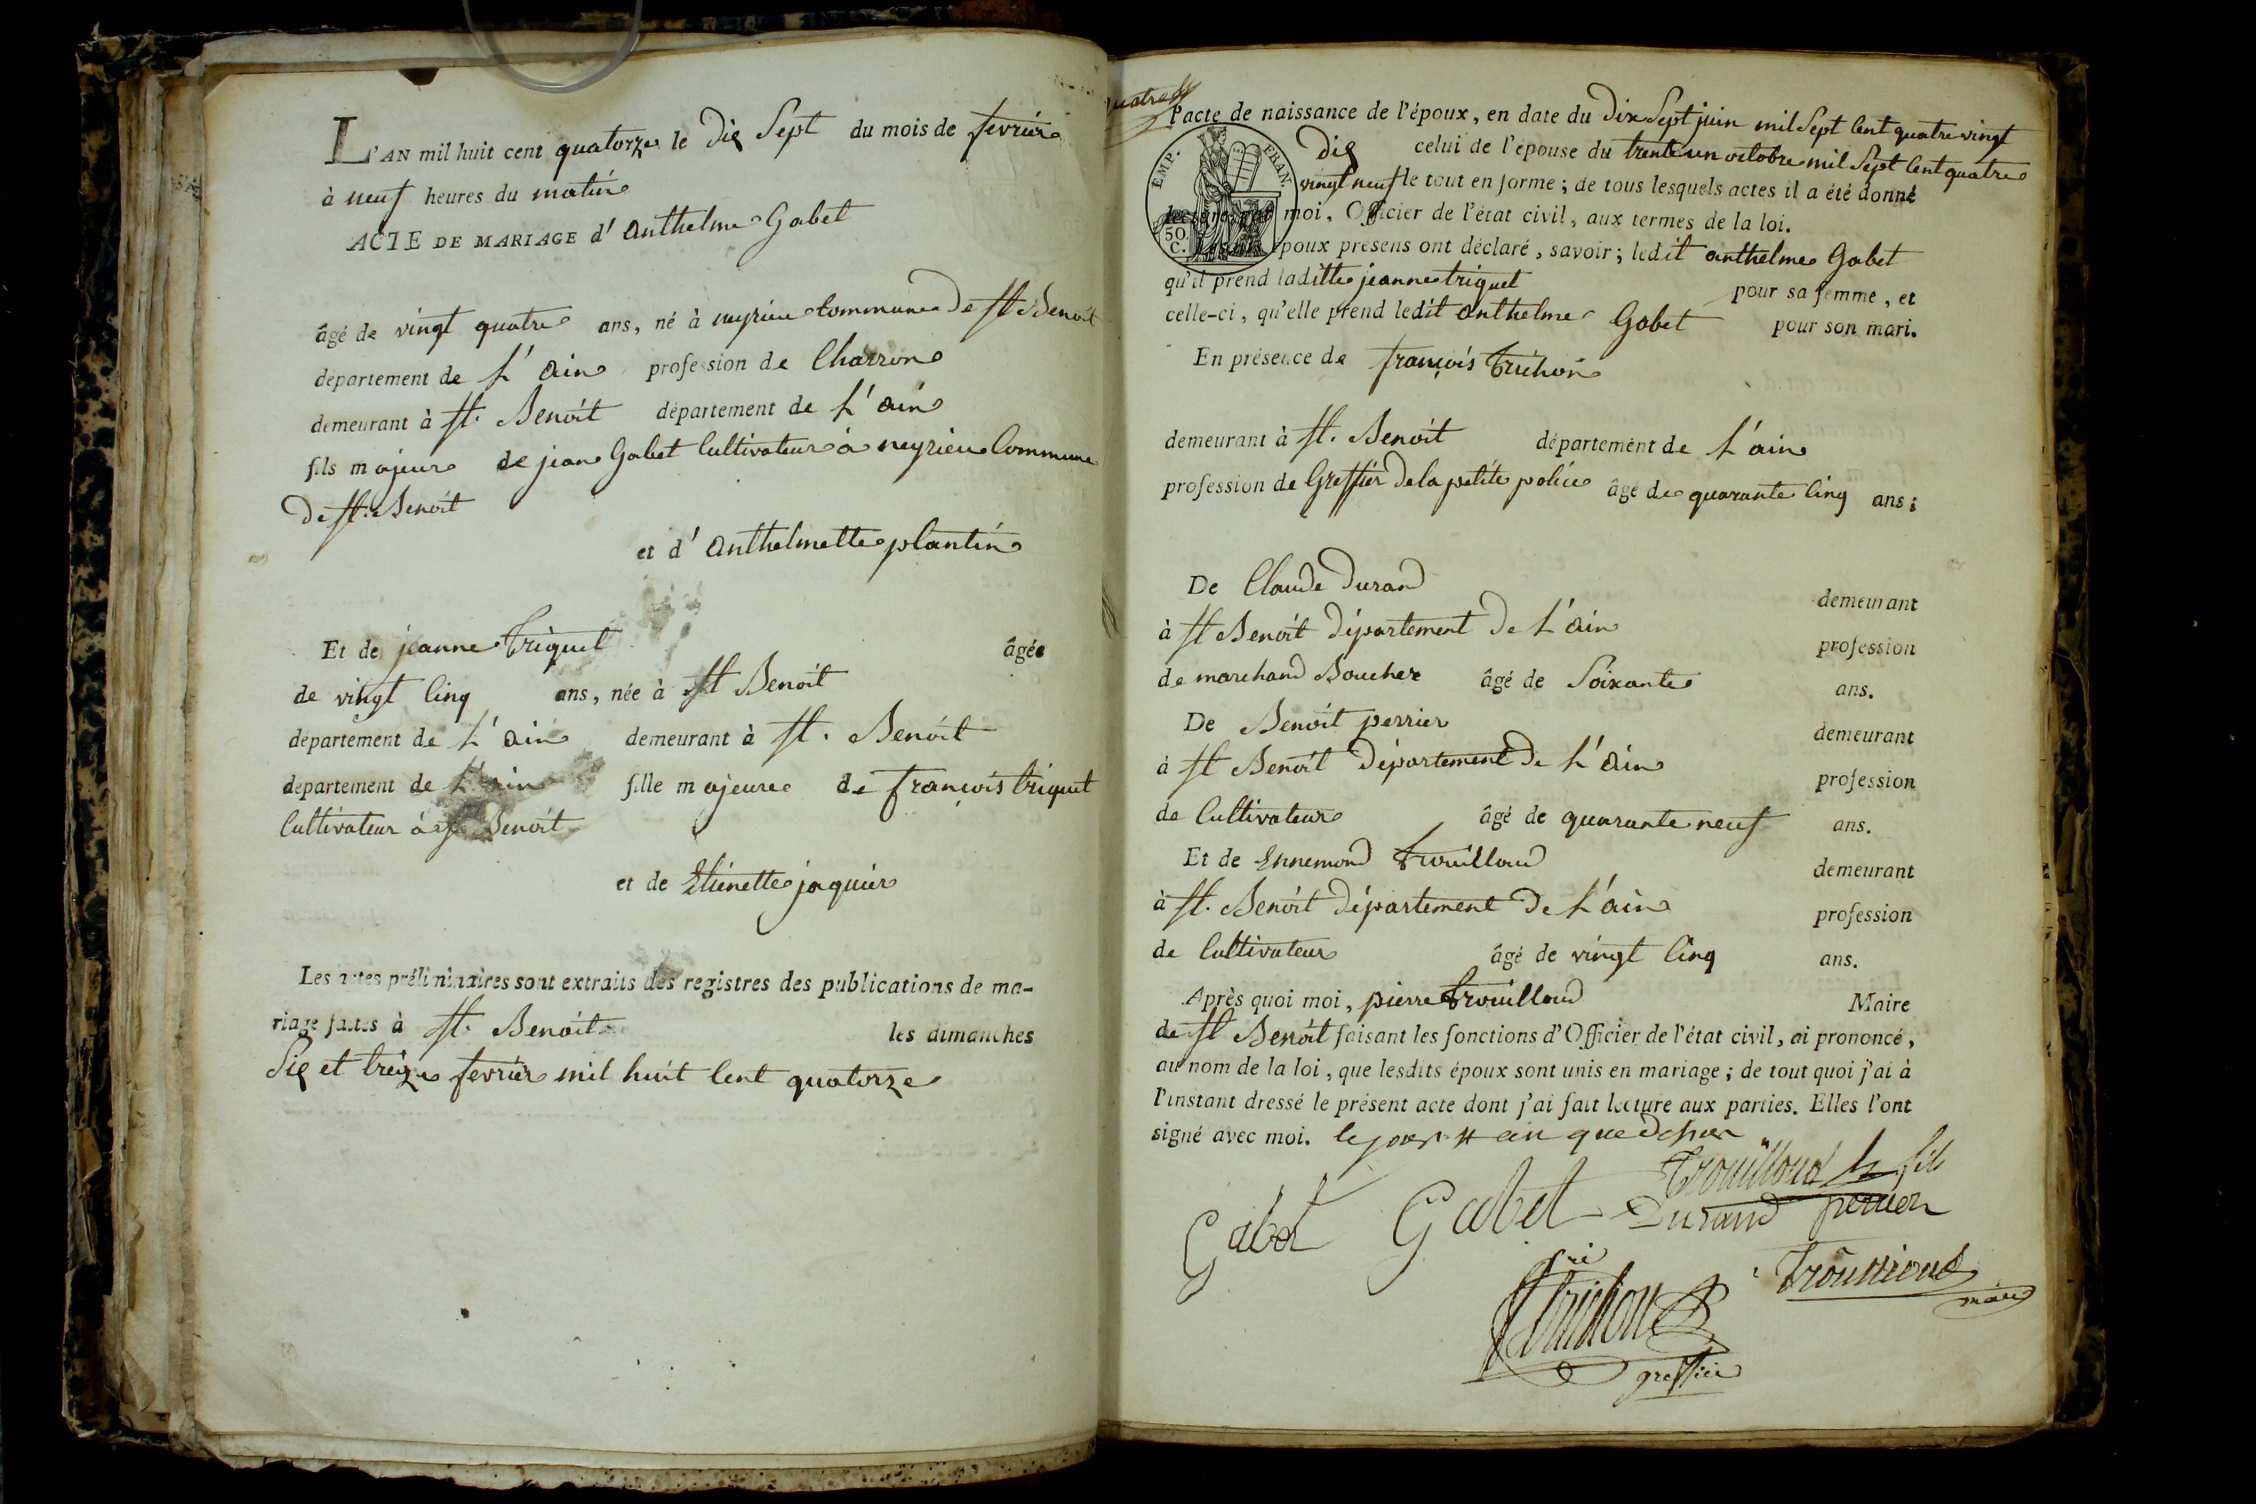 L'AN mil huit cent quatorze le dix Sept du mois de fevrier
à neuf heures du matin
ACTE DE MARIAGE d' Anthelme Gabet
âgé de vingt quatre ans, né à neyrieu Commune de St Benoit
département de L'ain profession de Charron
demeurant à St. Benoit département de L'ain
fils majeur de jean Gabet Cultivateur à neyrieu Commune
de St. Benoit
et d' Anthelmette plantin
Et de jeanne triquet âgée
de vingt Cinq ans, née à St Benoit
département de L'ain demeurant à St. Benoit
département de L'ain fille majeure de françois triquet
Cultivateur à St Benoit
et de Etienette jaquier
Les actes préliminaires sont extraits des registres des publications de ma-
riage faites à St. Benoit les dimanches
Six et treize fevrier mil huit Cent quatorze
l'acte de naissance de l'époux, en date du dix Sept juin mil Sept Cent quatre vingt
dix celui de l'épouse du trente un octobre mil Sept Cent quatre
vingt neuf le tout en forme ; de tous lesquels actes il a été donné
lecture par moi, Officier de l'état civil, aux termes de la loi.
EMP. FRAN.
50 C.
époux présens ont déclaré, savoir ; ledit anthelme Gabet
qu'il prend laditte jeanne triquet pour sa femme, et
celle-ci, qu'elle prend ledit anthelme Gabet pour son mari.
En présence de françois Trichon
demeurant à St. Benoit département de L'ain
profession de Greffier de la petite police âgé de quarante Cinq ans ;
De Claude durand demeurant
à St Benoit département de L'ain profession
de marchand Boucher âgé de Soixante ans.
De Benoit perrier demeurant
à St Benoit département de L'ain profession
de Cultivateur âgé de quarante neuf ans.
Et de Ennemond Trouilloud demeurant
à St. Benoit département de L'ain profession
de Cultivateur âgé de vingt Cinq ans.
Après quoi moi, pierre Trouilloud Maire
de St Benoit faisant les fonctions d'Officier de l'état civil, ai prononcé,
au nom de la loi, que lesdits époux sont unis en mariage ; de tout quoi j'ai à
l'instant dressé le présent acte dont j'ai fait lecture aux parties. Elles l'ont
signé avec moi. le jour et an que dessus
Trouilloud le fils
Gabet Gabet Durand perrier
Trichon Trouilloud
maire
greffier